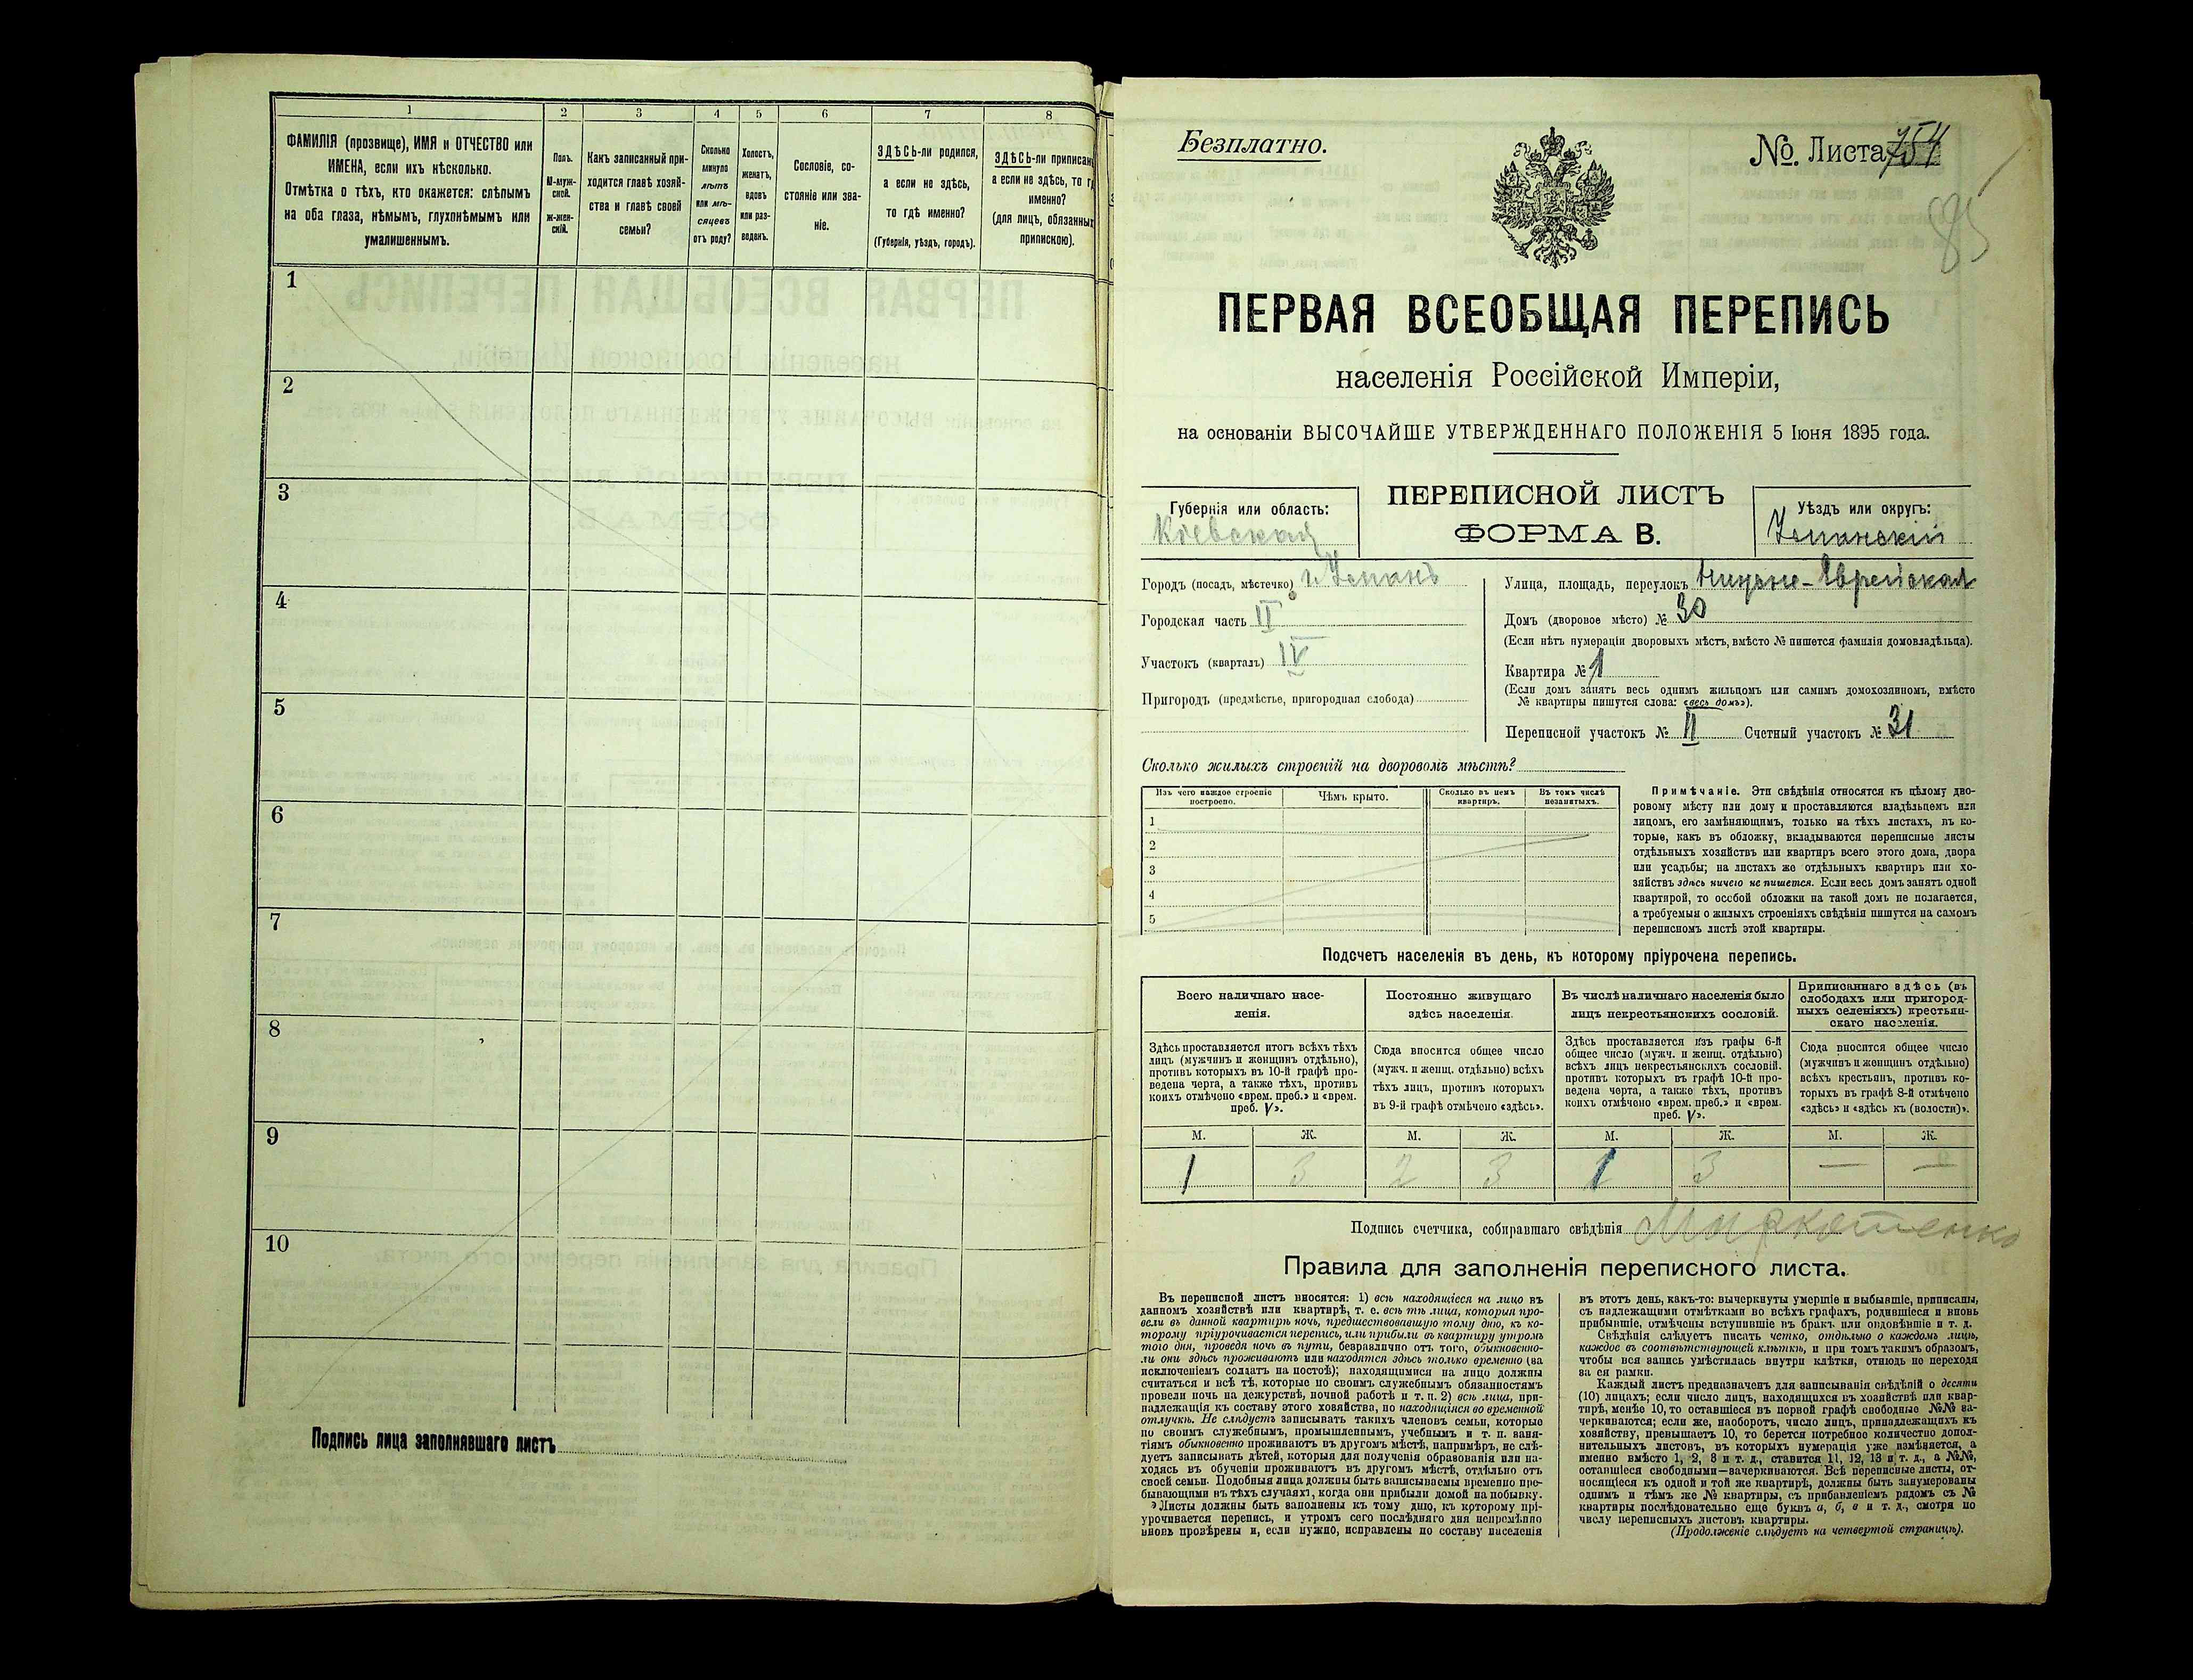 1 2 3 4 5 6 7 8
ФАМИЛІЯ (прозвище), ИМЯ и ОТЧЕСТВО или
ИМЕНА, если ихъ нѣсколько.
Отмѣтка о тѣхъ, кто окажется: слѣпымъ
на оба глаза, нѣмымъ, глухонѣмымъ или
умалишеннымъ.
Полъ.
М-муж-
ской.
Ж-жен-
скій.
Какъ записанный при-
ходится главѣ хозяй-
ства и главѣ своей
семьи?
Сколько
минуло
лѣтъ
или мѣ-
сяцевъ
отъ роду?
Холостъ,
женатъ,
вдовъ
или раз-
веденъ.
Сословіе, со-
стояніе или зва-
ніе.
ЗДѢСЬ-ли родился,
а если не здѣсь,
то гдѣ именно?
(Губернія, уѣздъ, городъ).
ЗДѢСЬ-ли приписанъ
а если не здѣсь, то гд
именно?
(для лицъ, обязанныхъ
припискою).
1
2
3
4
5
6
7
8
9
10
Подпись лица заполнявшаго листъ
Безплатно.
№. Листа 754
85
ПЕРВАЯ ВСЕОБЩАЯ ПЕРЕПИСЬ
населенія Россійской Имперіи,
на основаніи ВЫСОЧАЙШЕ УТВЕРЖДЕННАГО ПОЛОЖЕНІЯ 5 Іюня 1895 года.
Губернія или область:
Кіевская
ПЕРЕПИСНОЙ ЛИСТЪ
ФОРМА В.
Уѣздъ или округъ:
Уманскій
Городъ (посадъ, мѣстечко) г. Умань
Городская часть II
Участокъ (кварталъ) IV
Пригородъ (предмѣстье, пригородная слобода)
Улица, площадь, переулокъ Нижне-Еврейская
Домъ (дворовое мѣсто) № 30
(Если нѣтъ нумераціи дворовыхъ мѣстъ, вмѣсто № пишется фамилія домовладѣльца).
Квартира № 1
(Если домъ занятъ весь однимъ жильцомъ или самимъ домохозяиномъ, вмѣсто
№ квартиры пишутся слова: «весь домъ»).
Переписной участокъ № II Счетный участокъ № 31
Сколько жилыхъ строеній на дворовомъ мѣстѣ?
Изъ чего каждое строеніе
построено.
Чѣмъ крыто.
Сколько въ немъ
квартиръ.
Въ томъ числѣ
незанятыхъ.
1
2
3
4
5
Примѣчаніе. Эти свѣдѣнія относятся къ цѣлому дво-
ровому мѣсту или дому и проставляются владѣльцемъ или
лицомъ, его замѣняющимъ, только на тѣхъ листахъ, въ ко-
торые, какъ въ обложку, вкладываются переписные листы
отдѣльныхъ хозяйствъ или квартиръ всего этого дома, двора
или усадьбы; на листахъ же отдѣльныхъ квартиръ или хо-
зяйствъ здѣсь ничего не пишется. Если весь домъ занятъ одной
квартирой, то особой обложки на такой домъ не полагается,
а требуемыя о жилыхъ строеніяхъ свѣдѣнія пишутся на самомъ
переписномъ листѣ этой квартиры.
Подсчетъ населенія въ день, къ которому пріурочена перепись.
Всего наличнаго насе-
ленія.
Постоянно живущаго
здѣсь населенія.
Въ числѣ наличнаго населенія было
лицъ некрестьянскихъ сословій.
Приписаннаго здѣсь (въ
слободахъ или пригород-
ныхъ селеніяхъ) крестьян-
скаго населенія.
Здѣсь проставляется итогъ всѣхъ тѣхъ
лицъ (мужчинъ и женщинъ отдѣльно),
противъ которыхъ въ 10-й графѣ про-
ведена черта, а также тѣхъ, противъ
коихъ отмѣчено «врем. преб.» и «врем.
преб. V».
Сюда вносится общее число
(мужч. и женщ. отдѣльно) всѣхъ
тѣхъ лицъ, противъ которыхъ
въ 9-й графѣ отмѣчено «здѣсь».
Здѣсь проставляется изъ графы 6-й
общее число (мужч. и женщ. отдѣльно)
всѣхъ лицъ некрестьянскихъ сословій,
противъ которыхъ въ графѣ 10-й про-
ведена черта, а также тѣхъ, противъ
коихъ отмѣчено «врем. преб.» и «врем.
преб. V».
Сюда вносится общее число
(мужчинъ и женщинъ отдѣльно)
всѣхъ крестьянъ, противъ ко-
торыхъ въ графѣ 8-й отмѣчено
«здѣсь» и «здѣсь къ (волости)».
М. Ж. М. Ж. М. Ж. М. Ж.
1 3 2 3 1 3 — —
Подпись счетчика, собиравшаго свѣдѣнія
Правила для заполненія переписного листа.
Въ переписной листъ вносятся: 1) всѣ находящіеся на лицо въ
данномъ хозяйствѣ или квартирѣ, т. е. всѣ тѣ лица, которыя про-
вели въ данной квартирѣ ночь, предшествовавшую тому дню, къ ко-
торому пріурочивается перепись, или прибыли въ квартиру утромъ
того дня, проведя ночь въ пути, безразлично отъ того, обыкновенно-
ли они здѣсь проживаютъ или находятся здѣсь только временно (за
исключеніемъ солдатъ на постоѣ); находящимися на лицо должны
считаться и всѣ тѣ, которые по своимъ служебнымъ обязанностямъ
провели ночь на дежурствѣ, ночной работѣ и т. п. 2) всѣ лица, при-
надлежащія къ составу этого хозяйства, но находящіяся во временной
отлучкѣ. Не слѣдуетъ записывать такихъ членовъ семьи, которые
по своимъ служебнымъ, промышленнымъ, учебнымъ и т. п. заня-
тіямъ обыкновенно проживаютъ въ другомъ мѣстѣ, напримѣръ, не слѣ-
дуетъ записывать дѣтей, которыя для полученія образованія или на-
ходясь въ обученіи проживаютъ въ другомъ мѣстѣ, отдѣльно отъ
своей семьи. Подобныя лица должны быть записываемы временно пре-
бывающими въ тѣхъ случаяхъ, когда они прибыли домой на побывку.
Листы должны быть заполнены къ тому дню, къ которому прі-
урочивается перепись, и утромъ сего послѣдняго дня непремѣнно
вновь провѣрены и, если нужно, исправлены по составу населенія
въ этотъ день, какъ-то: вычеркнуты умершіе и выбывшіе, приписаны,
съ надлежащими отмѣтками во всѣхъ графахъ, родившіеся и вновь
прибывшіе, отмѣчены вступившіе въ бракъ или овдовѣвшіе и т. д.
Свѣдѣнія слѣдуетъ писать четко, отдѣльно о каждомъ лицѣ,
каждое въ соотвѣтствующей клѣткѣ, и при томъ такимъ образомъ,
чтобы вся запись умѣстилась внутри клѣтки, отнюдь не переходя
за ея рамки.
Каждый листъ предназначенъ для записыванія свѣдѣній о десяти
(10) лицахъ; если число лицъ, находящихся въ хозяйствѣ или квар-
тирѣ, менѣе 10, то оставшіеся въ первой графѣ свободные №№ за-
черкиваются; если же, наоборотъ, число лицъ, принадлежащихъ къ
хозяйству, превышаетъ 10, то берется потребное количество допол-
нительныхъ листовъ, въ которыхъ нумерація уже измѣняется, а
именно вмѣсто 1, 2, 3 и т. д., ставится 11, 12, 13 и т. д., а №№,
оставшіеся свободными—зачеркиваются. Всѣ переписные листы, от-
носящіеся къ одной и той же квартирѣ, должны быть занумерованы
однимъ и тѣмъ же № квартиры, съ прибавленіемъ рядомъ съ №
квартиры послѣдовательно еще буквъ а, б, в и т. д., смотря по
числу переписныхъ листовъ квартиры.
(Продолженіе слѣдуетъ на четвертой страницѣ).